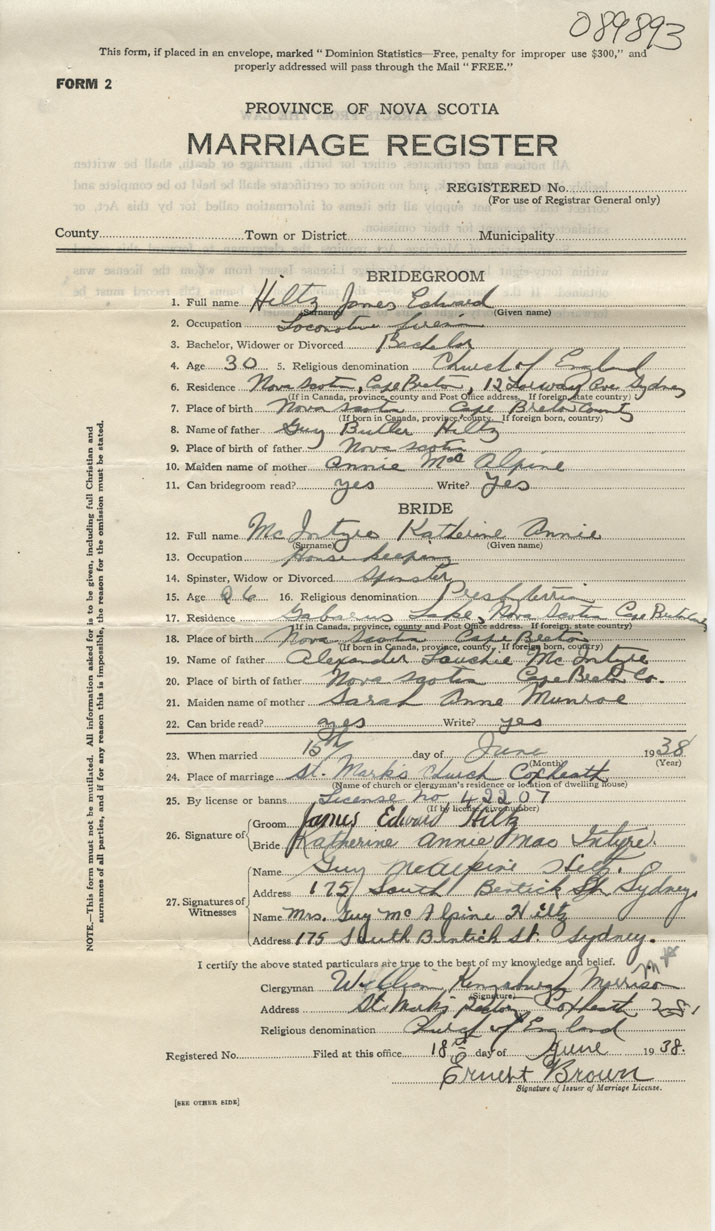 089893
This form, if placed in an envelope, marked "Dominion Statistics—Free, penalty for improper use $300," and
properly addressed will pass through the Mail "FREE."
FORM 2
PROVINCE OF NOVA SCOTIA
MARRIAGE REGISTER
REGISTERED No.
(For use of Registrar General only)
County Town or District Municipality
BRIDEGROOM
1. Full name Hiltz James Edward
(Surname) (Given name)
2. Occupation Locomotive fireman
3. Bachelor, Widower or Divorced Bachelor
4. Age 30 5. Religious denomination Church of England
6. Residence Nova Scotia, Cape Breton, 12 Ave Sydney
(If in Canada, province, county and Post Office address. If foreign, state country)
7. Place of birth Nova Scotia Cape Breton County
(If born in Canada, province, county. If foreign born, country)
8. Name of father Guy Butler Hiltz
9. Place of birth of father Nova Scotia
10. Maiden name of mother Annie McAlpine
11. Can bridegroom read? yes Write? Yes
BRIDE
12. Full name McIntyre Katherine Annie
(Surname) (Given name)
13. Occupation Housekeeping
14. Spinster, Widow or Divorced Spinster
15. Age 26 16. Religious denomination Presbyterian
17. Residence Gabarus Lake, Nova Scotia Cape Breton
(If in Canada, province, county and Post Office address. If foreign, state country)
18. Place of birth Nova Scotia Cape Breton
(If born in Canada, province, county. If foreign born, country)
19. Name of father Alexander Lauchie McIntyre
20. Place of birth of father Nova Scotia Cape Breton Co.
21. Maiden name of mother Sarah Anne Munroe
22. Can bride read? yes Write? yes
23. When married 15th day of June 1938
(Month) (Year)
24. Place of marriage St. Mark's Church Coxheath
(Name of church or clergyman's residence or location of dwelling house)
25. By license or banns License no 42207
(If by license, give number)
26. Signature of
Groom James Edward Hiltz
Bride Katherine Annie MacIntyre.
27. Signatures of Witnesses
Name Guy McAlpine Hiltz.
Address 175 South Bentick St. Sydney
Name Mrs. Guy McAlpine Hiltz
Address 175 South Bentich St. Sydney.
I certify the above stated particulars are true to the best of my knowledge and belief.
Clergyman William Kingsburgh Morrison
(Signature)
Address St. Mark's Rectory Coxheath
Religious denomination Church of England
Registered No. Filed at this office 18th day of June 1938.
Ernest Brown
Signature of Issuer of Marriage License.
[SEE OTHER SIDE]
NOTE.—This form must not be mutilated. All information asked for is to be given, including full Christian and
surnames of all parties, and if for any reason this is impossible, the reason for the omission must be stated.